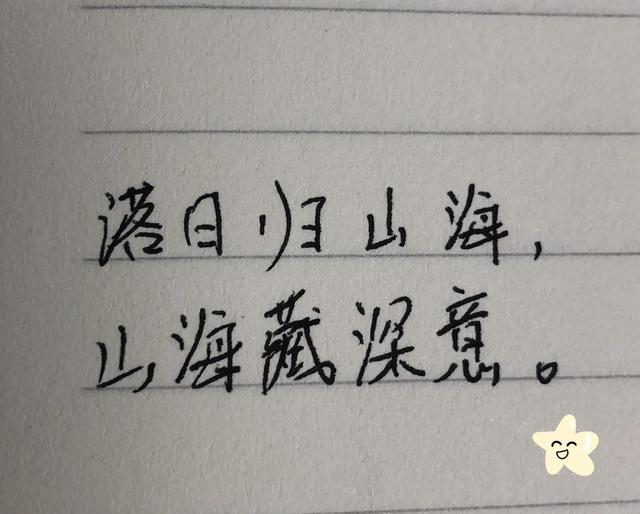 落日归山海,
山海藏深意。